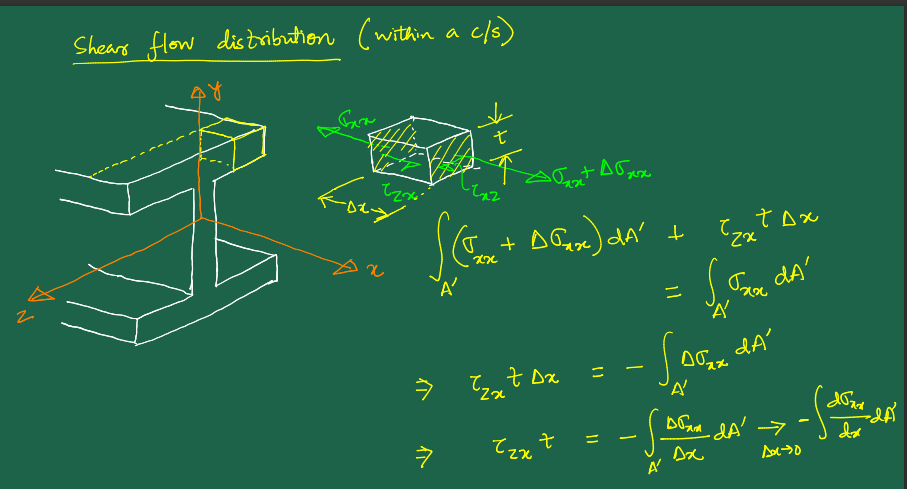 Shear flow distribution (within a c/s)
y
σxx
t
σxx + Δσxx
τzx
τxz
Δx
x
z
∫A' (σxx + Δσxx) dA' + τzx t Δx
= ∫A' σxx dA'
⇒ τzx t Δx = - ∫A' Δσxx dA'
⇒ τzx t = - ∫A' Δσxx/Δx dA' → Δx→0 - ∫ dσxx/dx dA'